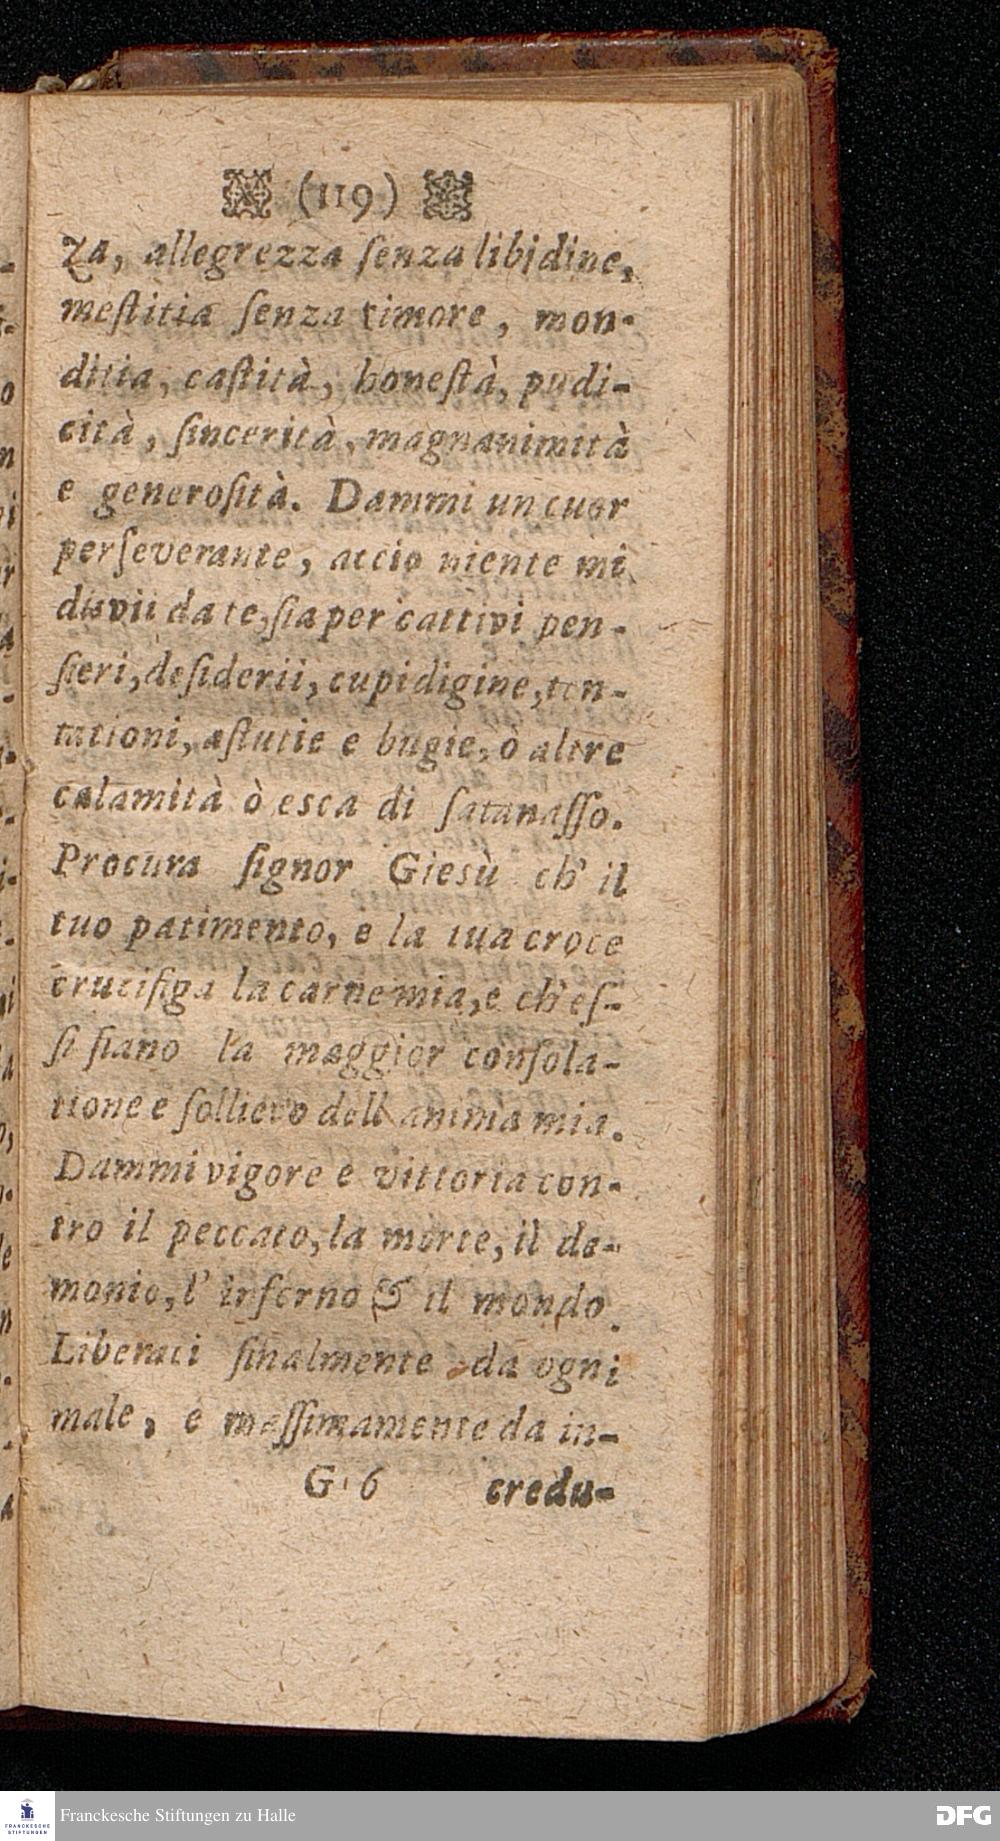 (119)
za, allegrezza ſenza libidine,
meſtitia ſenza timore, mon-
ditia, caſtità, honeſtà, pudi-
cità, ſincerità, magnanimità
e generoſità. Dammi un cuor
perſeverante, accio niente mi
disvii da te, ſia per cattivi pen-
ſieri, deſiderii, cupidigine, ten-
tationi, aſtutie e bugie, ò altre
calamità ò esca di ſatanaſſo.
Procura ſignor Giesù ch' il
tuo patimento, e la tua croce
crucifiga la carne mia, e ch' eſ-
ſi ſiano la maggior conſola-
tione e ſollievo dell anima mia.
Dammi vigore e vittoria con-
tro il peccato, la morte, il de-
monio, l' inferno & il mondo.
Liberaci finalmente da ogni
male, e maſſimamente da in-
G 6 credu-
FRANCKESCHE STIFTUNGEN
Franckesche Stiftungen zu Halle
DFG